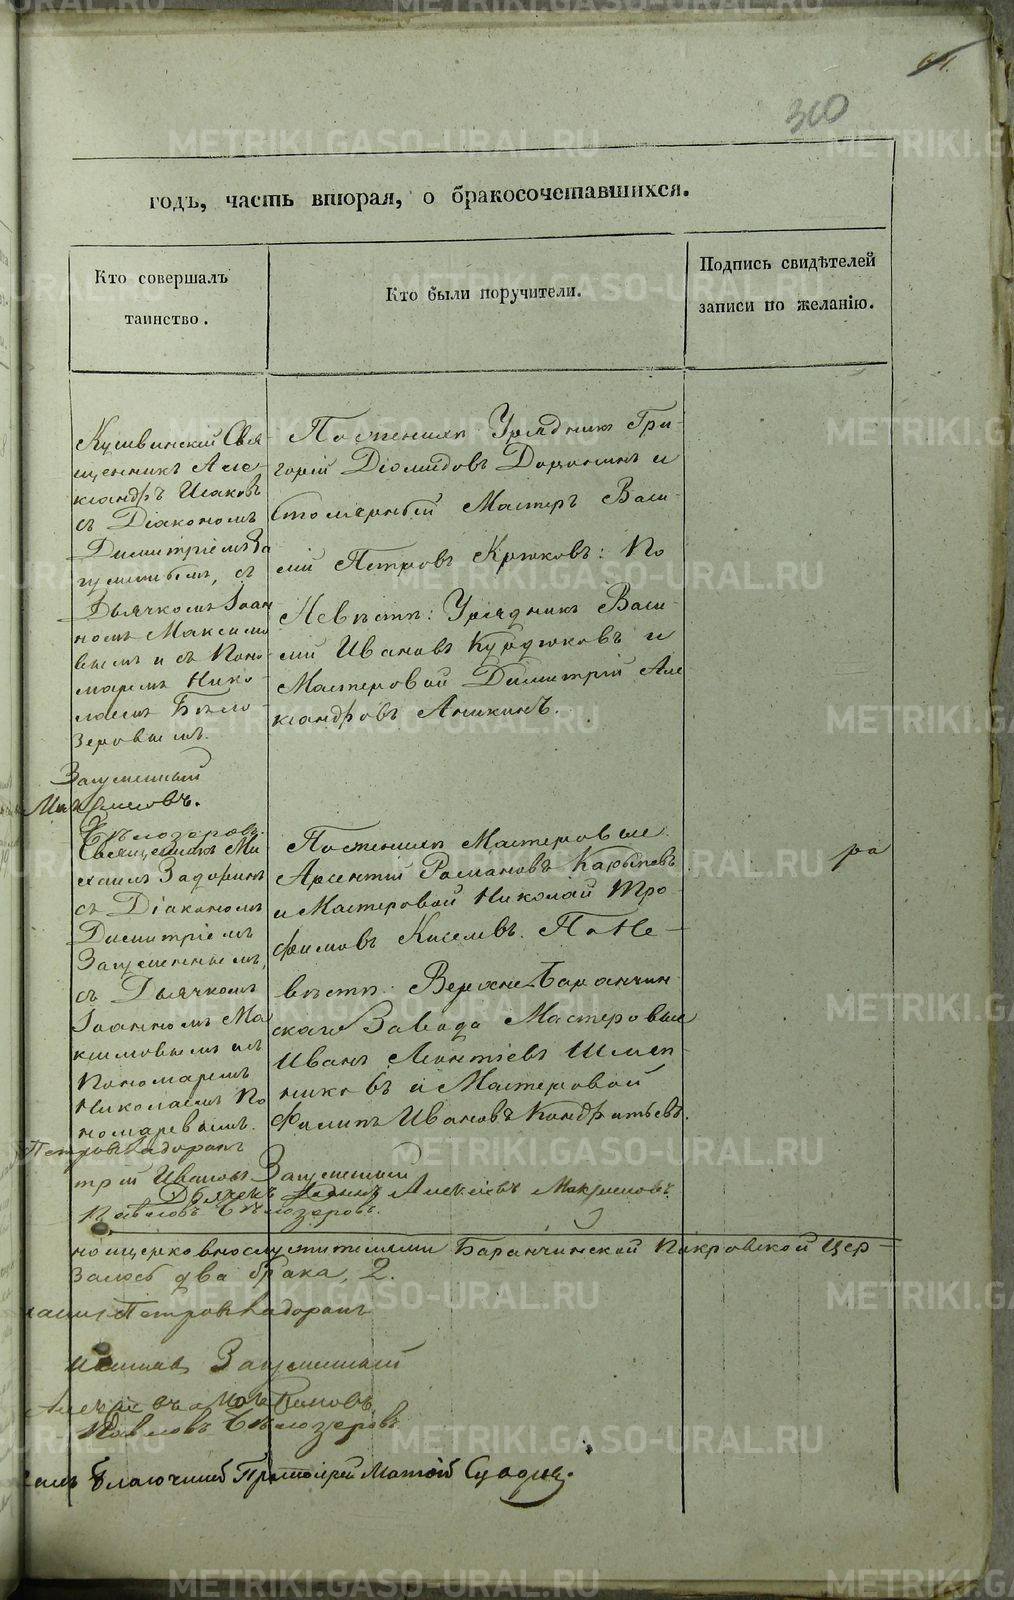 300
годъ, часть вторая, о бракосочетавшихся.
Кто совершалъ
таинство.
Кто были поручители.
Подпись свидѣтелей
записи по желанію.
Кушвинскій Свя-
щенникъ Але-
ксандръ Исаковъ
съ Діакономъ
Димитріемъ За
гуменнымъ, съ
Дьячкомъ Іоан
номъ Максимо
вымъ и съ Поно-
маремъ Нико-
лаемъ Бѣло-
зеровымъ.
Загуменный
Бѣлозеровъ.
По женихѣ Урядникъ Гри-
горій Діомидовъ Доронинъ и
Столярный Мастеръ Васи-
лій Петровъ Крюковъ: По
Невѣстѣ: Урядникъ Васи-
лій Ивановъ Курдюковъ и
Мастеровой Димитрій Але
ксандровъ Аникинъ.
Священникъ Ми
хаилъ Задоринъ
съ Діакономъ
Димитріемъ
Загуменнымъ,
съ Дьячкомъ
Іоанномъ Ма
ксимовымъ и съ
Пономаремъ
Николаемъ По
номаревымъ.
По женихѣ Мастеровые
Арсентій Романовъ
и Мастеровой Николай Тро
фимовъ Киселевъ. По Не-
вѣстѣ: Верхне Баранчин-
скаго Завода Мастеровые
Иванъ Леонтіевъ Шмен-
никовъ и Мастеровой
Филипъ Ивановъ Кондратьевъ.
ра
Петровъ Задоринъ
трій Ивановъ Загуменный
Дьячекъ Іоаннъ Алексіевъ Максимовъ
Павловъ Бѣлозеровъ.
но щерковнослужителями Баранчинской Покровской Цер-
залось два брака, 2.
хаилъ Петровъ Задоринъ
Загуменный
Алексіевъ Максимовъ,
Павловъ Бѣлозеровъ
Благочинный Протоіерей
METRIKI.GASO-URAL.RU